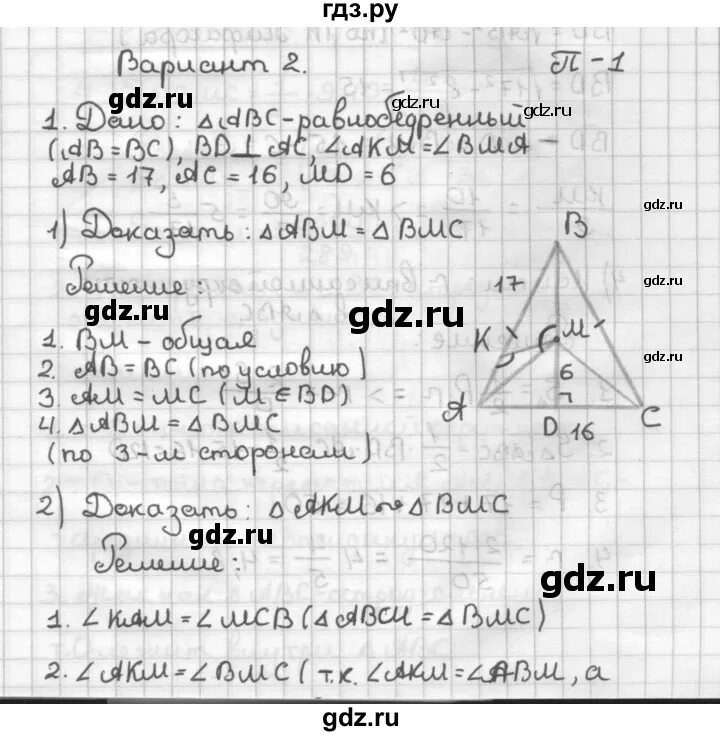 гдз.ру
Вариант 2. П-1
gdz.ru gdz.ru
1. Дано: △ABC-равнобедренный
(AB=BC), BD⊥AC, ∠AKM=∠BMA -
AB=17, AC=16, MD=6
gdz.ru
1) Доказать: △ABM=△BMC
B
Решение:
17
gdz.ru
gdz.ru gdz.ru
1. BM-общая
K M
gdz.ru
2. AB=BC (по условию)
6
3. AM=MC (M∈BD)
A C
4. △ABM=△BMC
D 16
(по 3-м сторонам)
gdz.ru
2) Доказать: △AKM∾△BMC
gdz.ru gdz.ru
Решение:
gdz.ru
1. ∠KAM=∠MCB (△ABCM=△BMC)
gdz.ru
2. ∠AKM=∠BMC (т.к. ∠AKM=∠ABM, а
gdz.ru